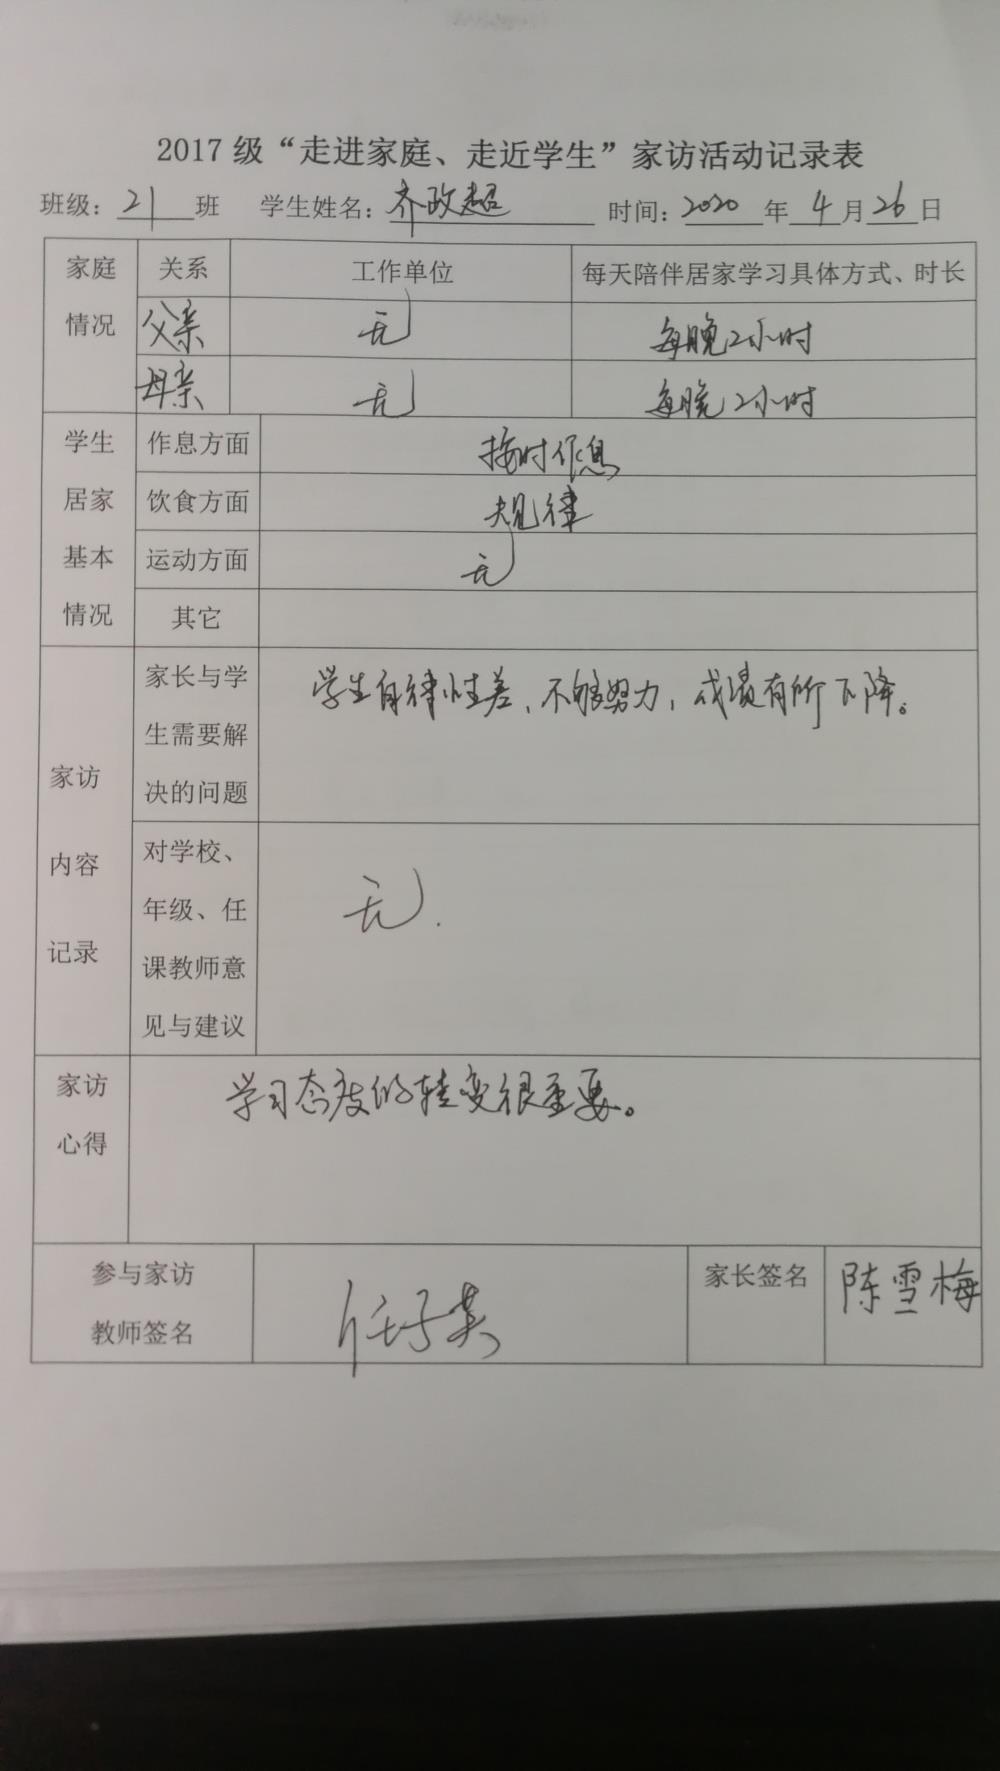 2017 级“走进家庭、走近学生”家访活动记录表
班级：21 班 学生姓名：齐政超 时间：2020 年 4 月 26 日
家庭情况 关系 工作单位 每天陪伴居家学习具体方式、时长
父亲 无 每晚2小时
母亲 无 每晚2小时
学生居家基本情况 作息方面 按时作息
饮食方面 规律
运动方面 无
其它
家访内容记录
家长与学
生需要解
决的问题
学生自律性差，不够努力，成绩有所下降。
对学校、
年级、任
课教师意
见与建议
无.
家访
心得
学习态度的转变很重要。
参与家访
教师签名
家长签名 陈雪梅